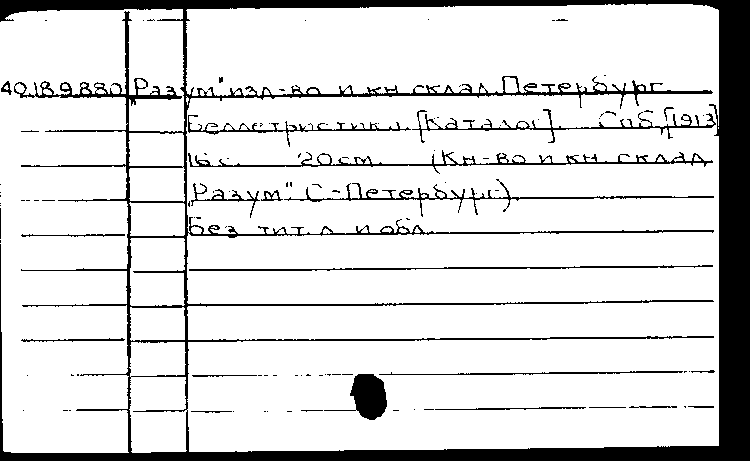 40.18.9.880 „Разум", изд-во и кн. склад. Петербург.
Беллетристика. [Каталог]. Спб, [1913]
16 с. 20 см. (Кн-во и кн. склад
„Разум". С-Петербург).
Без тит. л. и обл.